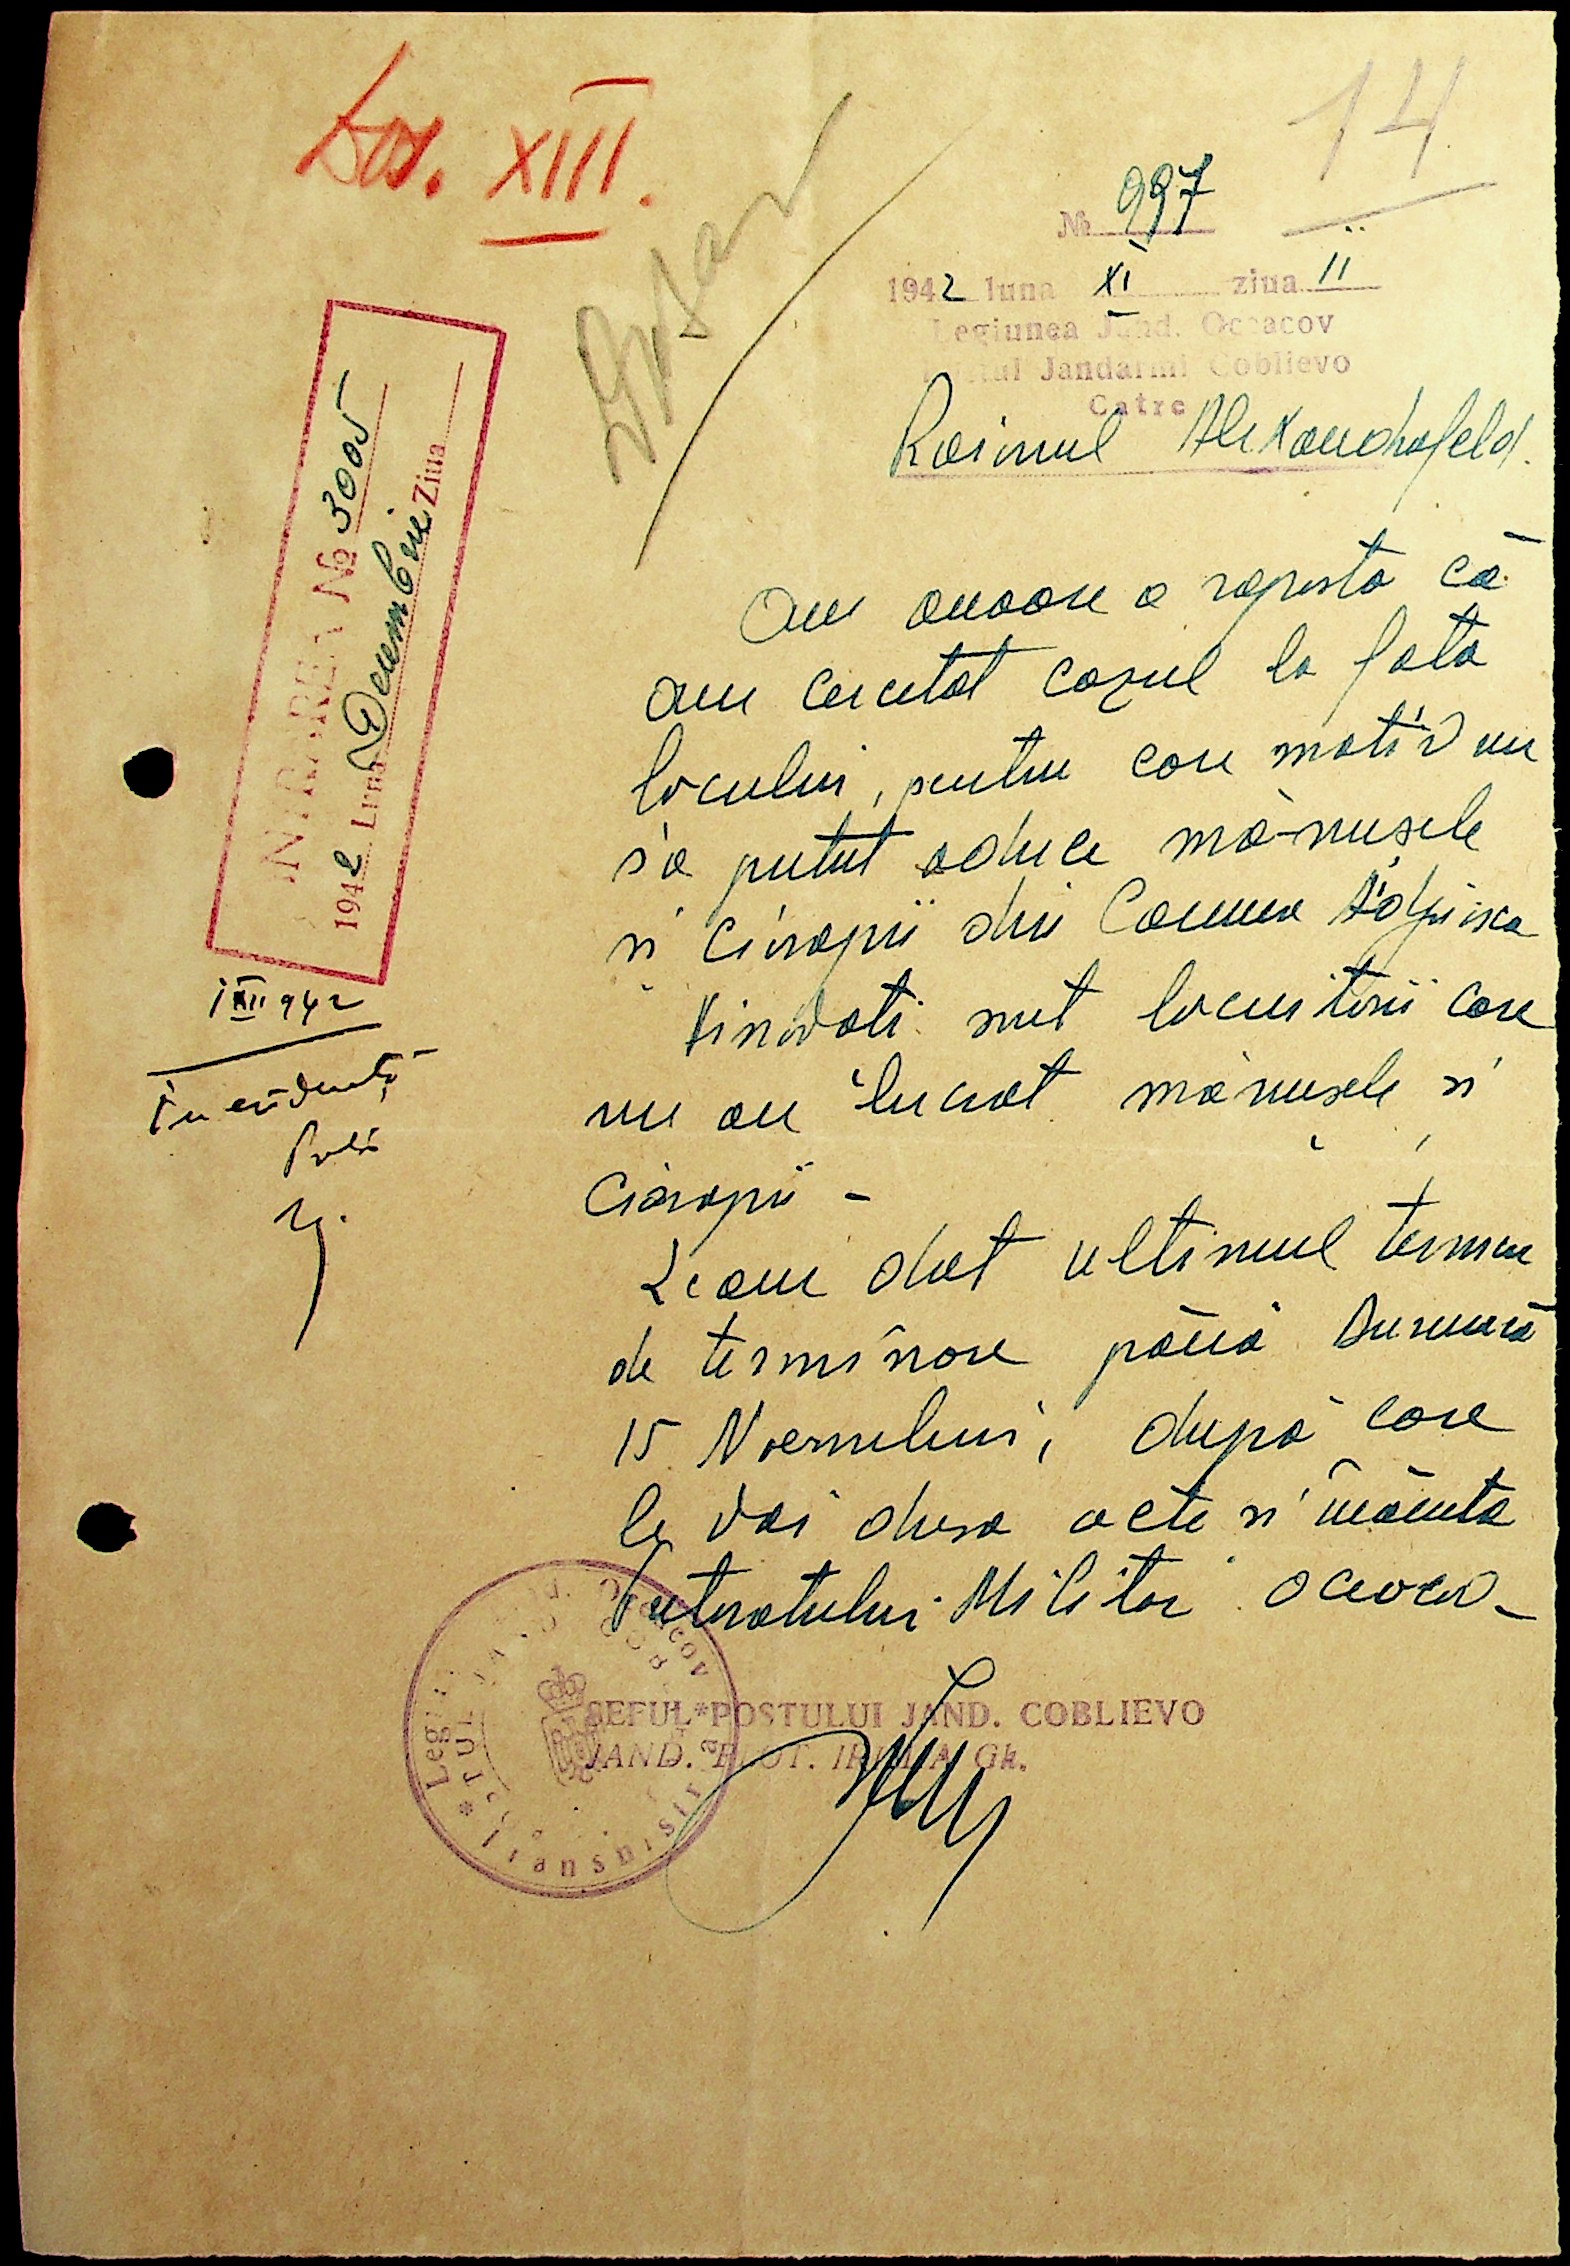 Dos. XIII.
14
№ 997
1942 luna XI ziua 11
Legiunea Jand. Oceacov
Postul Jandarmi Coblievo
Catre
Raionul Alexandrofeld.
INTRAREA № 3005
1942 Luna Decembrie Ziua
1 XII 942
In evidență
Am onoare a raporta că
am cercetat cazul la fata
locului, pentru care motiv nu
s'a putut aduce mă-nusele
si ciorapii din Comuna
Vinovati sunt locuitorii care
nu au lucrat mănusele si
Ciorapii -
Le am dat ultimul termen
de terminare pănă Duminică
15 Noembrie, după care
le voi dresa acte si înainta
Pretoratului Militar Oceacov -
SEFUL POSTULUI JAND. COBLIEVO
JAND. PLOT. IRIMIA Gh.
* Leg. Jand. Oceacov
* Transnistria